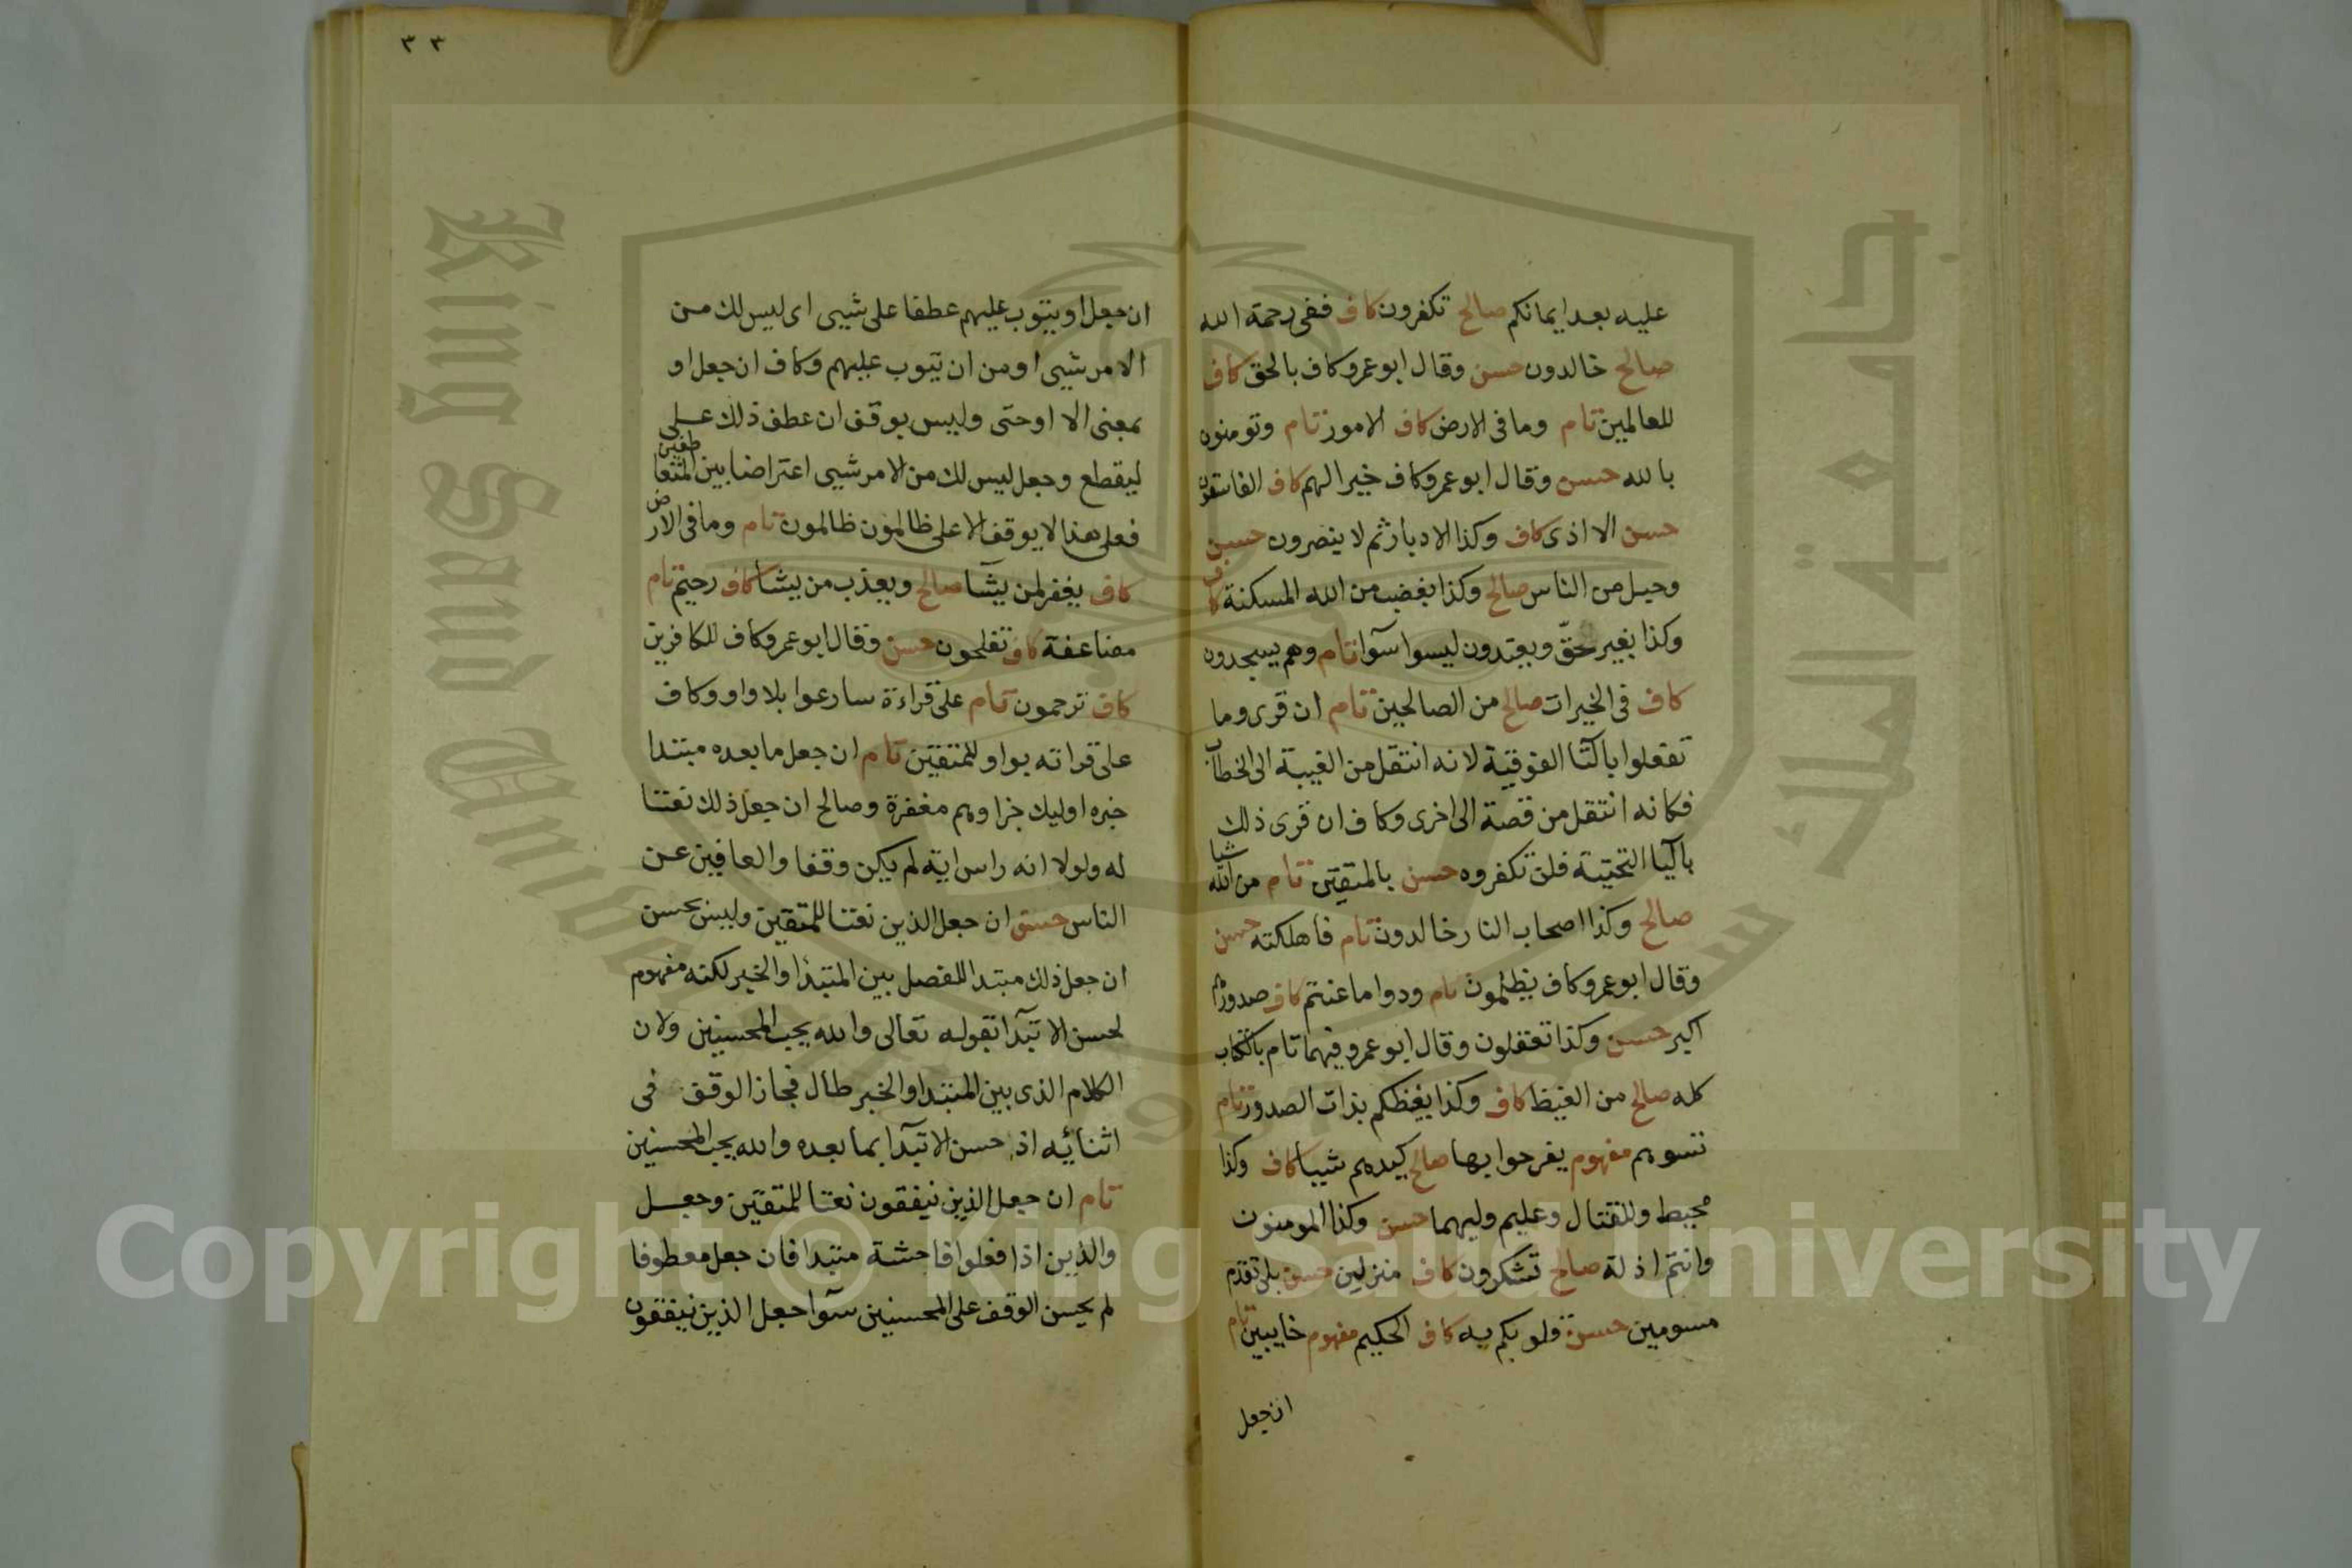 عليه بعد ايمانكم صالح تكفرون كاف ففي رحمة الله
صالح خالدون حسن وقال ابو عمرو كاف بالحق كاف
للعالمين تام وما في الارض كاف الامور تام وتومنون
بالله حسن وقال ابو عمرو كاف خيرا لهم كاف الفاسقون
حسن الا اذى كاف وكذا الادبار ثم لا ينصرون حسن
وحبل من الناس صالح وكذا بغضب من الله المسكنة كاف
وكذا بغير حق ويعتدون ليسوا سوآ تام وهم يسجدون
كاف في الخيرات صالح من الصالحين تام ان قرى وما
تفعلوا بالتآ الفوقية لانه انتقل من الغيبة الى الخطاب
فكانه انتقل من قصة الى اخرى وكاف ان قرى ذلك
باليآ التحتية فلن تكفروه حسن بالمتقين تام من الله شيا
صالح وكذا اصحاب النار خالدون تام فاهلكته حسن
وقال ابو عمرو كاف يظلمون تام ودوا ما عنتم كاف صدورهم
اكبر حسن وكذا تعقلون وقال ابو عمرو فيهما تام بالكتاب
كله صالح من الغيظ كاف وكذا بغيظكم بذات الصدور تام
تسوهم مفهوم يفرحوا بها صالح كيدهم شييا كاف وكذا
محيط وللقتال وعليم وليهما حسن وكذا المومنون
وانتم اذلة صالح تشكرون كاف منزلين حسن بلى تقدم
مسومين حسن قلوبكم به كاف الحكيم مفهوم خايبين تام
ان جعل
٣٣
ان جعل او يتوب عليهم عطفا على شيى اى ليس لك من
الامر شيى او من ان يتوب عليهم وكاف ان جعل او
بمعنى الا او حتى وليس بوقف ان عطف ذلك على
ليقطع وجعل ليس لك من الامر شيى اعتراضا بين المتعاطفين
فعلى هذا لا يوقف الا على ظالمون ظالمون تام وما في الارض
كاف يغفر لمن يشآ صالح ويعذب من يشا كاف رحيم تام
مضاعفة كاف تفلحون حسن وقال ابو عمرو كاف للكافرين
كاف ترحمون تام على قراءة سارعوا بلا واو وكاف
على قراته بواو للمتقين تام ان جعل ما بعده مبتدا
خبره اوليك جزاوهم مغفرة وصالح ان جعل ذلك نعتا
له ولولا انه راس اية لم يكن وقفا والعافين عن
الناس حسن ان جعل الذين نعتا للمتقين وليس بحسن
ان جعل ذلك مبتدا للفصل بين المتبدا والخبر لكنه مفهوم
لحسن الابتدآ بقوله تعالى والله يحب المحسنين ولان
الكلام الذى بين المبتدا والخبر طال فجاز الوقف في
اثنائه اذ حسن الابتدآ بما بعده والله يحب المحسنين
تام ان جعل الذين ينفقون نعتا للمتقين وجعل
والذين اذا فعلوا فاحشة مبتدا فان جعل معطوفا
لم يحسن الوقف على المحسنين سوآ جعل الذين ينفقون
جامعة الملك سعود
King Saud University
Copyright © King Saud University